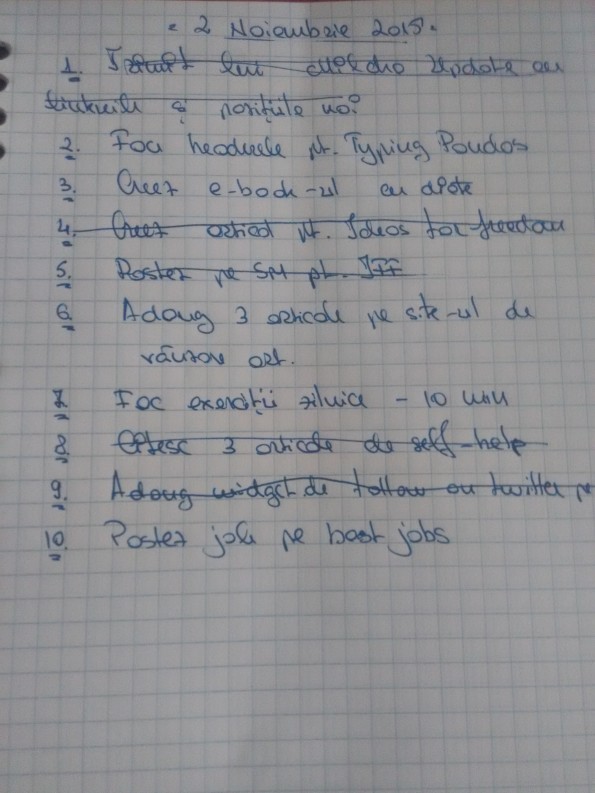 2 Noiembrie 2015.
1. Trimit lui update cu
linkurile și pozițiile no?
2. Fac headerele pt. Typing Pandas
3. Creez e-book-ul cu
4. Creez articol pt. Ideas for freedom
5. Postez pe SM pt. IFF
6. Adaug 3 articole pe site-ul de
vânzări art.
7. Fac exerciții zilnice - 10 min
8. Citesc 3 articole de self-help
9. Adaug widget de follow on twitter p
10. Postez job pe best jobs